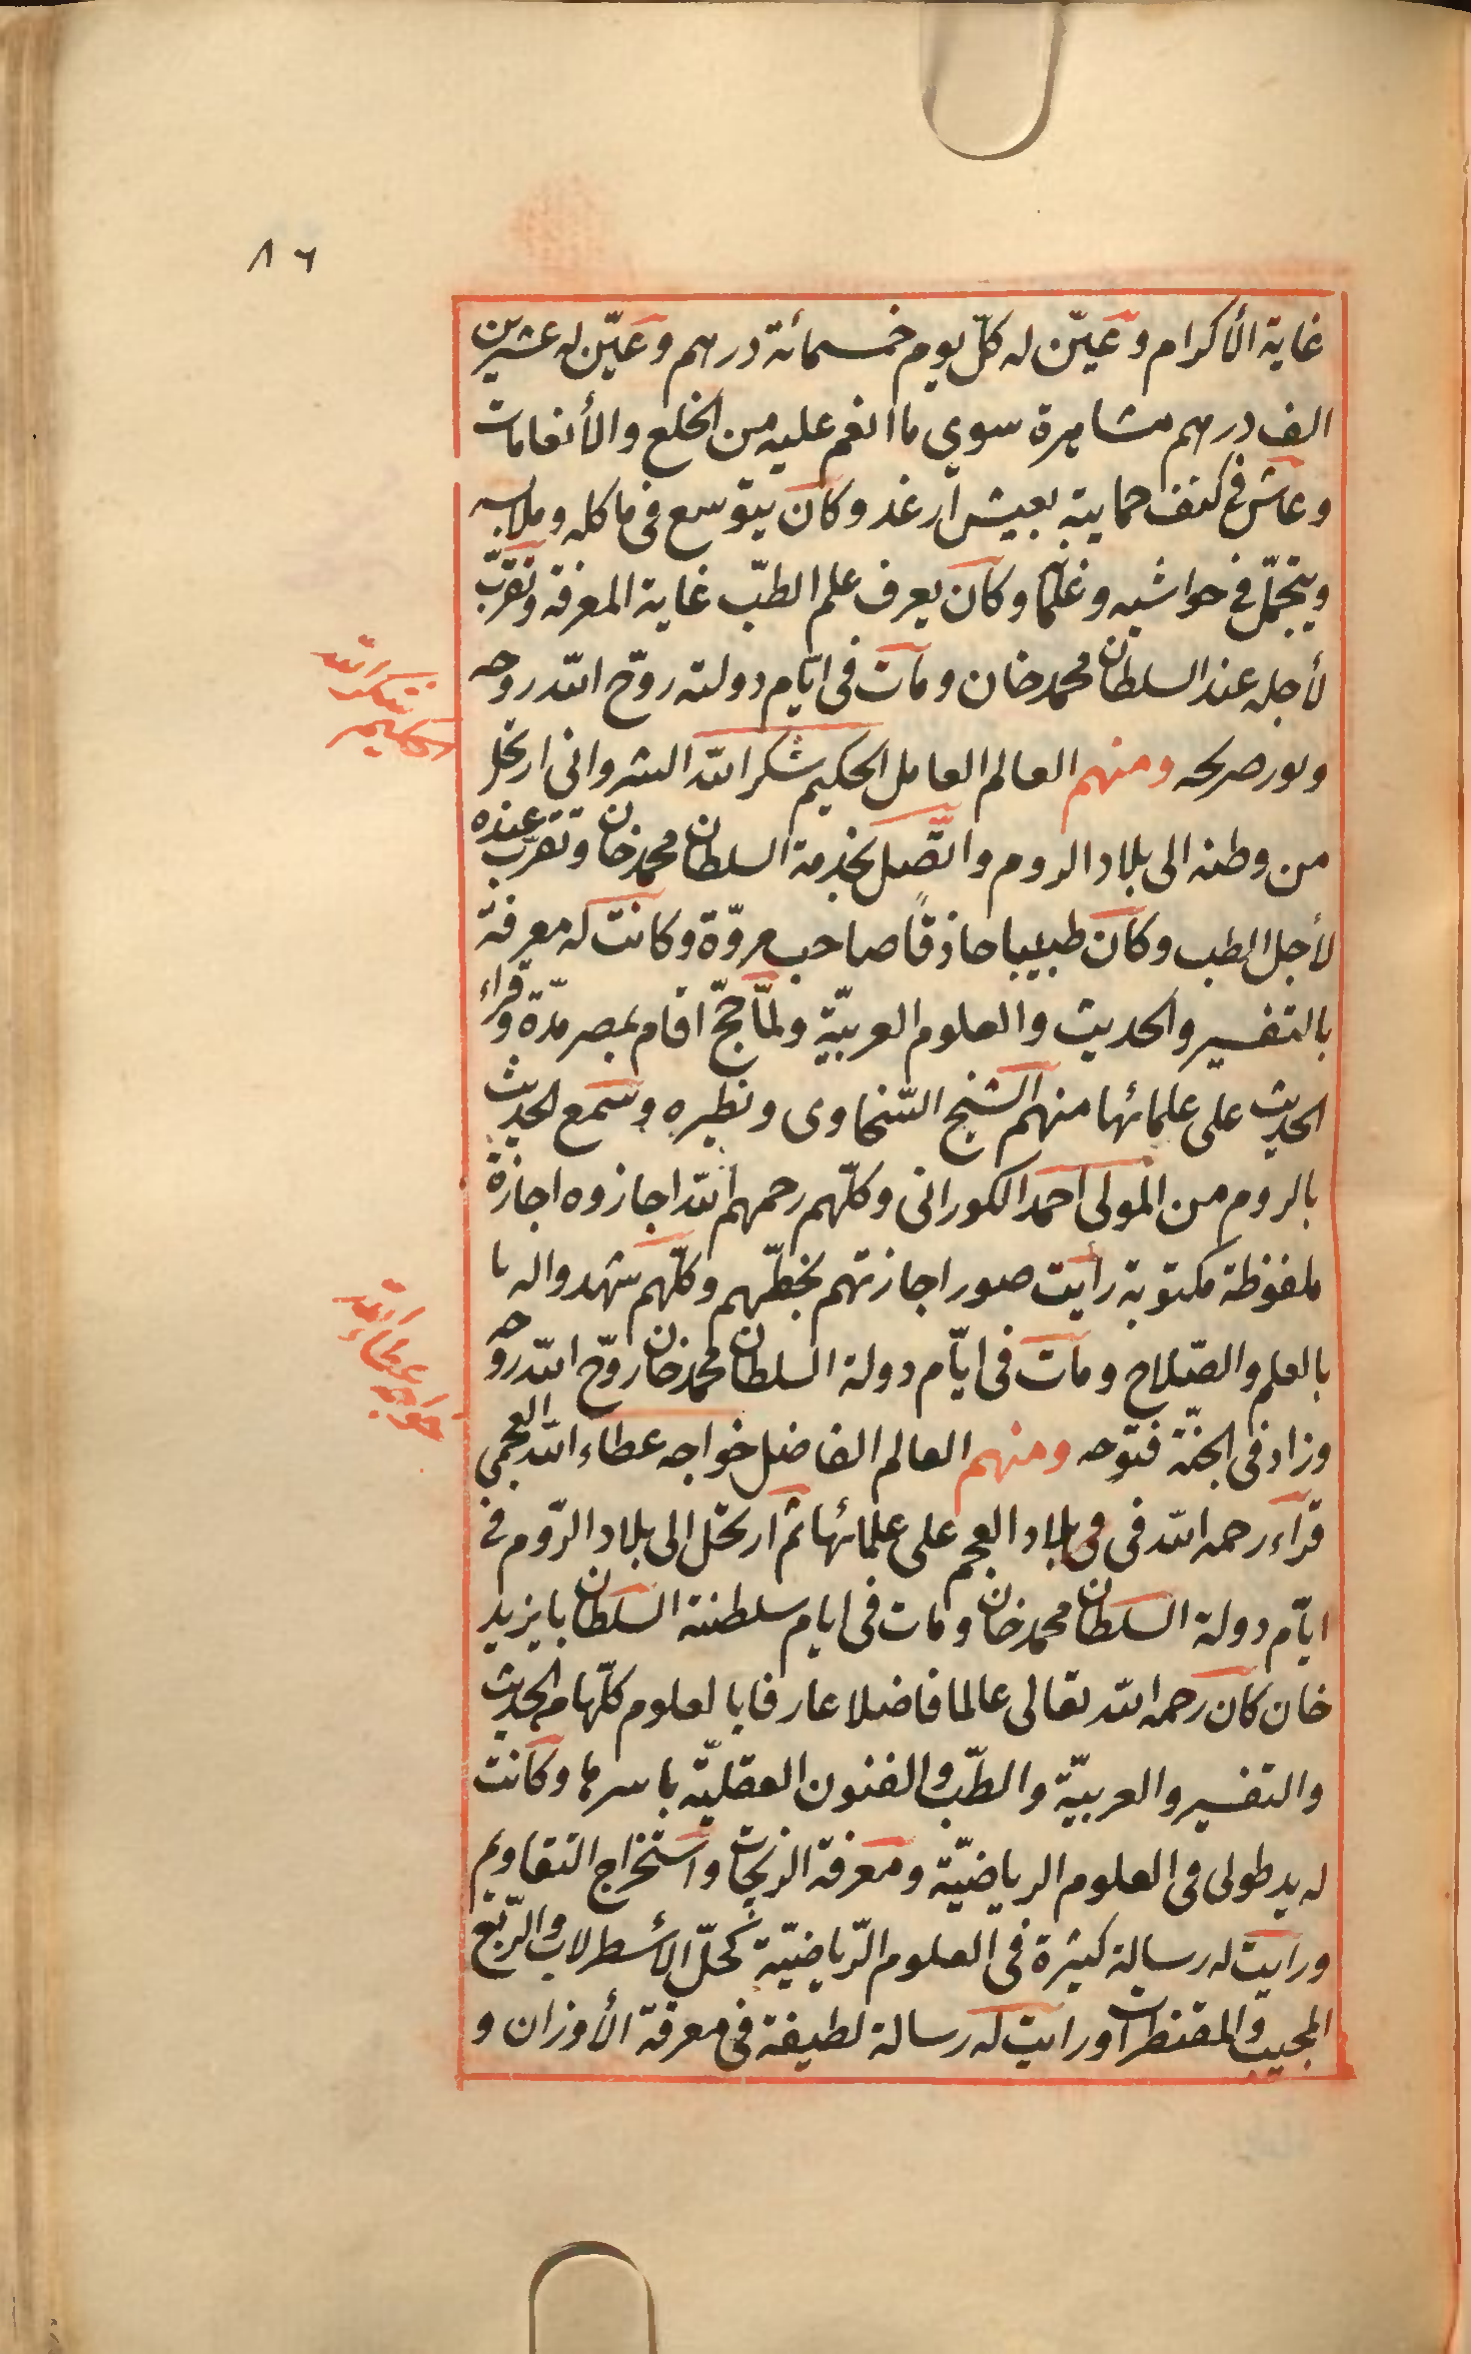 ٨٦
غاية الأكرام وعيّن له كلّ يوم خمسمائة درهم وعيّن له عشرين
الف درهم مشاهرة سوى ما انعم عليه من الخلع والأنعامات
وعاش فى كنف حمايته بعيش ارغد وكان يتوسع فى ماكله وملابسه
ويتجمّل فى حواشيه وغلمانه وكان يعرف علم الطبّ غاية المعرفة وتقرّب
لأجله عند السلطان محمد خان ومات فى ايّام دولته روّح الله روحه
ونور ضريحه ومنهم العالم العامل الحكيم شكر الله الشروانى ارتحل
شكر الله
الحكيم
من وطنه الى بلاد الروم واتّصل بخدمة السلطان محمد خان وتقرّب عنده
لأجل الطب وكان طبيبا حاذقًا صاحب مروّة وكانت له معرفة
بالتفسير والحديث والعلوم العربيّة ولمّا حجّ اقام بمصر مدّة وقراء
الحديث على علمائها منهم الشيخ السّخاوى ونظيره وسمع الحديث
بالروم من المولى احمد الكورانى وكلّهم رحمهم الله اجازوه اجازة
ملفوظة مكتوبة رأيت صور اجازتهم بخطّهم وكلّهم شهدوا له با
بالعلم والصّلاح ومات فى ايّام دولة السلطان محمد خان روّح الله روحه
وزاد فى الجنّة فتوحه ومنهم العالم الفاضل خواجه عطاء الله العجمى
عطاء الله
خواجه
قراء رحمه الله فى فى بلاد العجم على علمائها ثم ارتحل الى بلاد الرّوم فى
ايّام دولة السلطان محمد خان ومات فى ايام سلطنة السلطان بايزيد
خان كان رحمه الله تعالى عالما فاضلا عارفا بالعلوم كلّها من الحديث
والتفسير والعربيّة والطبّ والفنون العقليّة باسرها وكانت
له يد طولى فى العلوم الرياضيّة ومعرفة الزيجات واستخراج التقاويم
ورايت له رسالة كثيرة فى العلوم الرّياضيّة كحلّ الأسطرلاب والرّبع
المجيب والمقنطرات ورايت له رسالة لطيفة فى معرفة الأوزان و